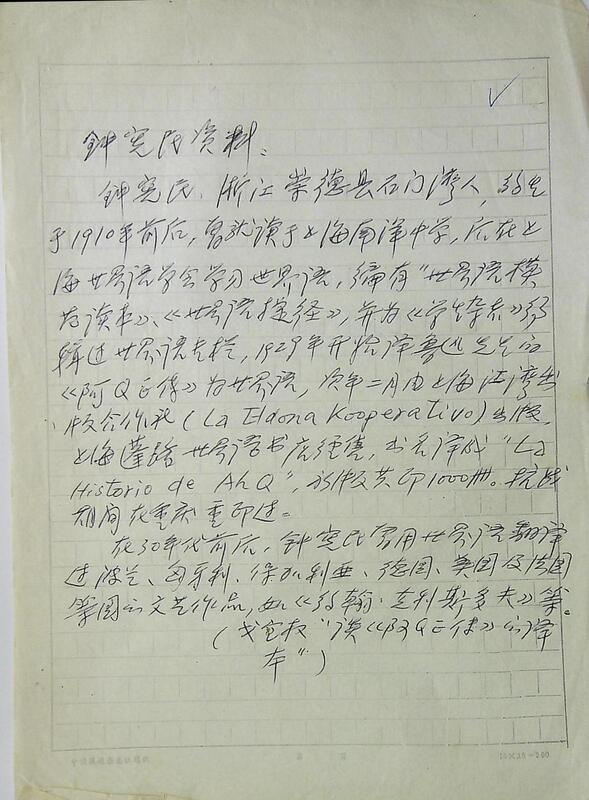 钟宪民资料:
钟宪民,浙江崇德县石门湾人,约生
于1910年前后,曾就读于上海南洋中学,后在上
海世界语学会学习世界语,编有"世界语模
范读本》、《世界语捷径》,并为《学生杂志》编
辑过世界语专栏,1929年开始译鲁迅先生的
《阿Q正传》为世界语,次年二月由上海江湾出
版合作社(La Eldona Kooperativo)出版,
上海蓬路世界语书店经售,书名译成"La
Historio de Ah Q",初版共印1000册。抗战
期间在重庆重印过。
在30年代前后,钟宪民曾用世界语翻译
过波兰、匈牙利、保加利亚、德国、美国及法国
等国的文艺作品,如《约翰·克利斯多夫》等。
(戈宝权"谈《阿Q正传》的译
本")
15×20=300